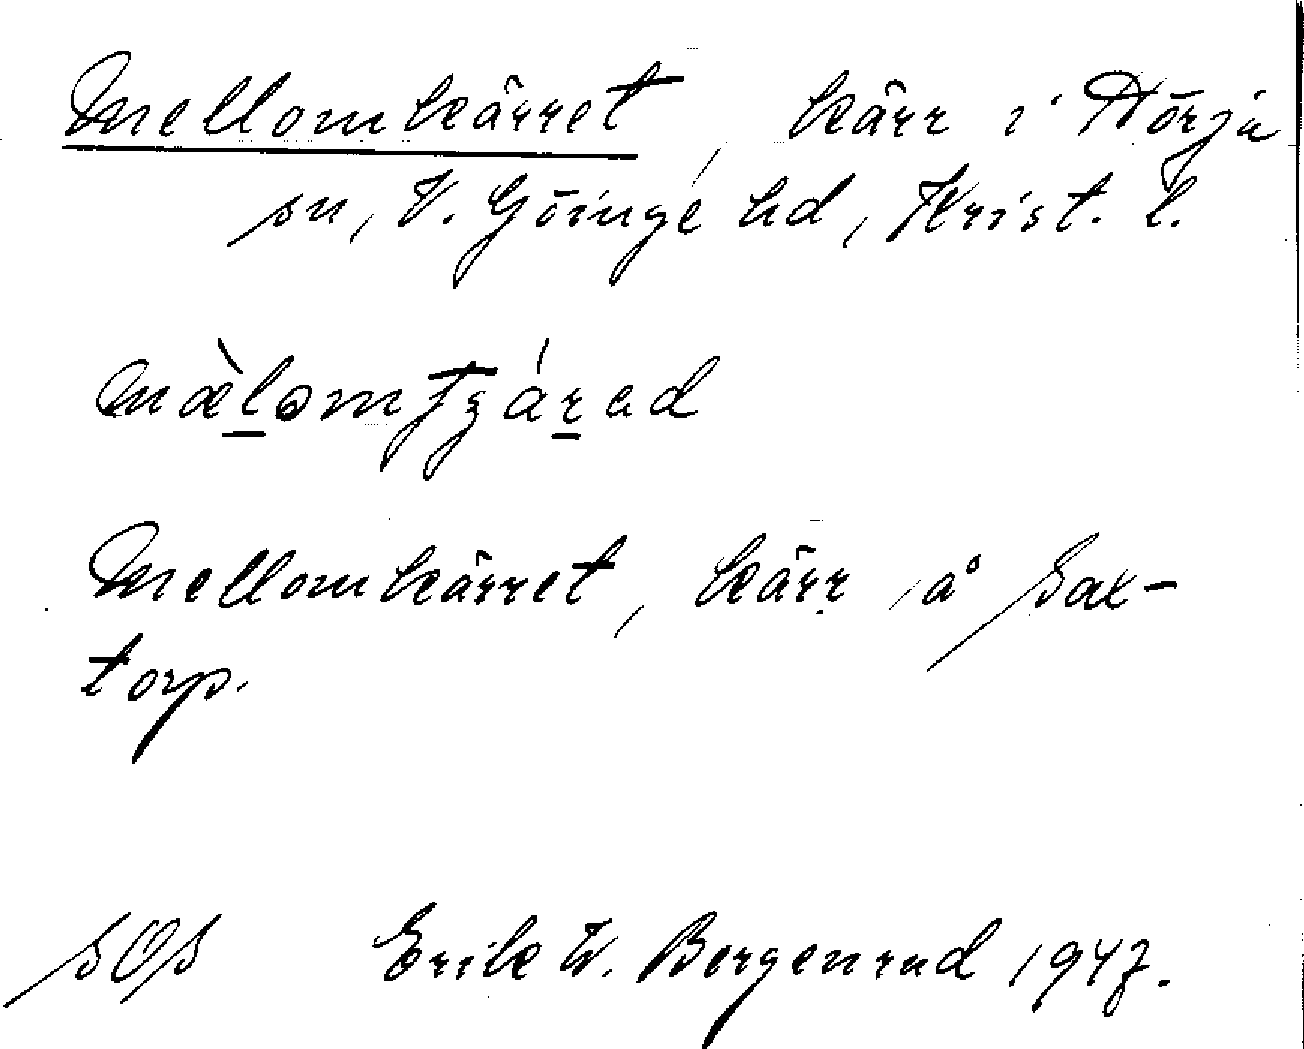 Mellomkärret, kärr i Nörja
sn, V. Göinge hd, Krist. l.
Mellomkärret, kärr å Sax-
torp.
SOS Erik W. Bergenrud 1947.